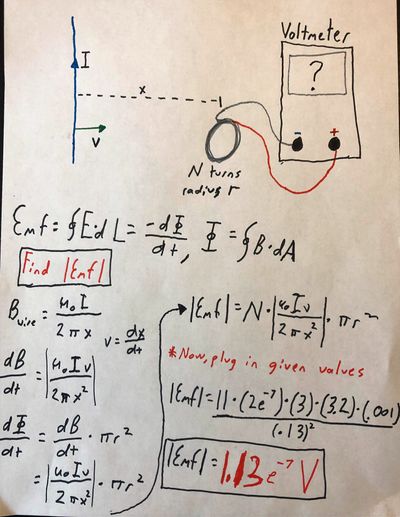 Voltmeter
?
I
x
v
- +
N turns
radius r
Emf = ∮E·dL = -dΦ/dt, Φ = ∮B·dA
Find |Emf|
B_wire = μ₀I/2πx
v = dx/dt
dB/dt = |μ₀Iv/2πx²|
dΦ/dt = dB/dt · πr²
= |μ₀Iv/2πx²| · πr²
|Emf| = N · |μ₀Iv/2πx²| · πr²
*Now, plug in given values
|Emf| = 11·(2e⁻⁷)·(3)·(3.2)·(.001)/(.13)²
|Emf| = 1.13e⁻⁷ V